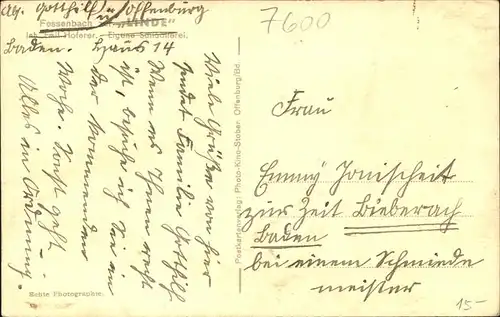 Abs. Gotthilf Offenburg
Fessenbach "LINDE"
Inh. Emil Hoferer. Eigene Schlächterei.
Baden. Haus 14
Viele Grüße von hier
sendet Familie Gotthilf
Wenn es Ihnen recht
ist, besuche ich Sie in
der kommenden
Woche. Sonst geht
Alles in Ordnung.
Echte Photographie.
Postkartenverlag: Photo-Kino-Stober, Offenburg/Bd.
7600
Frau
Emmy Jonischeit
zur Zeit Bieberach
Baden
bei einem Schmiede
meister
15-